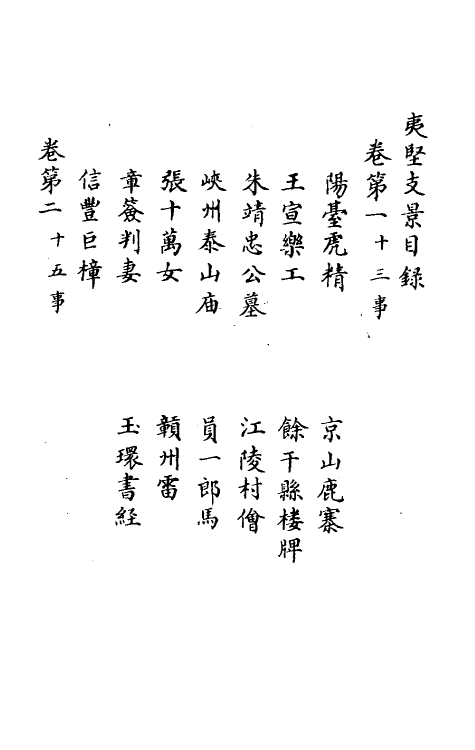 夷堅支景目録
卷第一 十三事
陽臺虎精 京山鹿寨
王宣樂工 餘干縣樓牌
朱靖忠公墓 江陵村儈
峽州泰山庙 員一郎馬
張十萬女 贑州雷
章簽判妻 玉環書経
信豐巨樟
卷第二 十五事